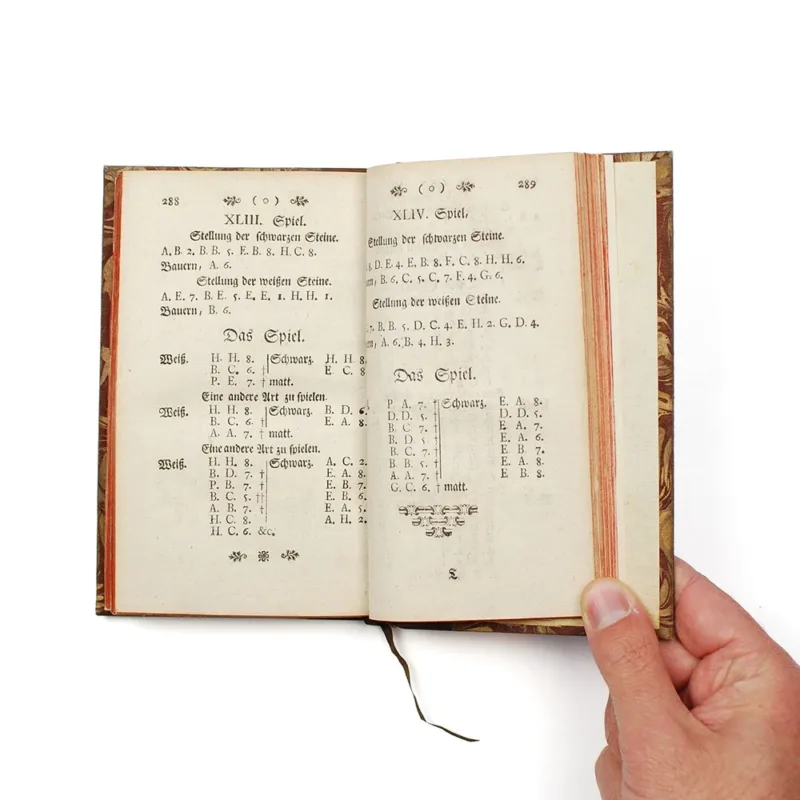 288 ( o )
XLIII. Spiel.
Stellung der schwarzen Steine.
A. B. 2. B. B. 5. E. B. 8. H. C. 8.
Bauern, A. 6.
Stellung der weißen Steine.
A. E. 7. B. E. 5. E. E. 1. H. H. 1.
Bauern, B. 6.
Das Spiel.
Weiß. H. H. 8. Schwarz. H. H. 8.
B. C. 6. † E. C. 8
P. E. 7. † matt.
Eine andere Art zu spielen.
Weiß. H. H. 8. Schwarz. B. D. 6.
B. C. 6. † E. A. 8.
A. A. 7. † matt.
Eine andere Art zu spielen.
Weiß. H. H. 8. Schwarz. A. C. 2.
B. D. 7. † E. A. 8.
P. B. 7. † E. B. 7.
B. C. 5. †† E. B. 6.
A. B. 7. † E. A. 5.
H. C. 8. A. H. 2.
H. C. 6. &c.
( o ) 289
XLIV. Spiel,
Stellung der schwarzen Steine.
D. E. 4. E. B. 8. F. C. 8. H. H. 6.
B. 6. C. 5. C. 7. F. 4. G. 6.
Stellung der weißen Steine.
7. B. B. 5. D. C. 4. E. H. 2. G. D. 4.
A. 6. B. 4. H. 3.
Das Spiel.
P. A. 7. † Schwarz. E. A. 8.
D. D. 5. D. D. 5.
B. C. 7. † E. A. 7.
B. D. 5. † E. A. 6.
B. C. 7. † E. B. 7.
B. B. 5. † E. A. 8.
A. A. 7. † E. B. 8.
G. C. 6. † matt.
T